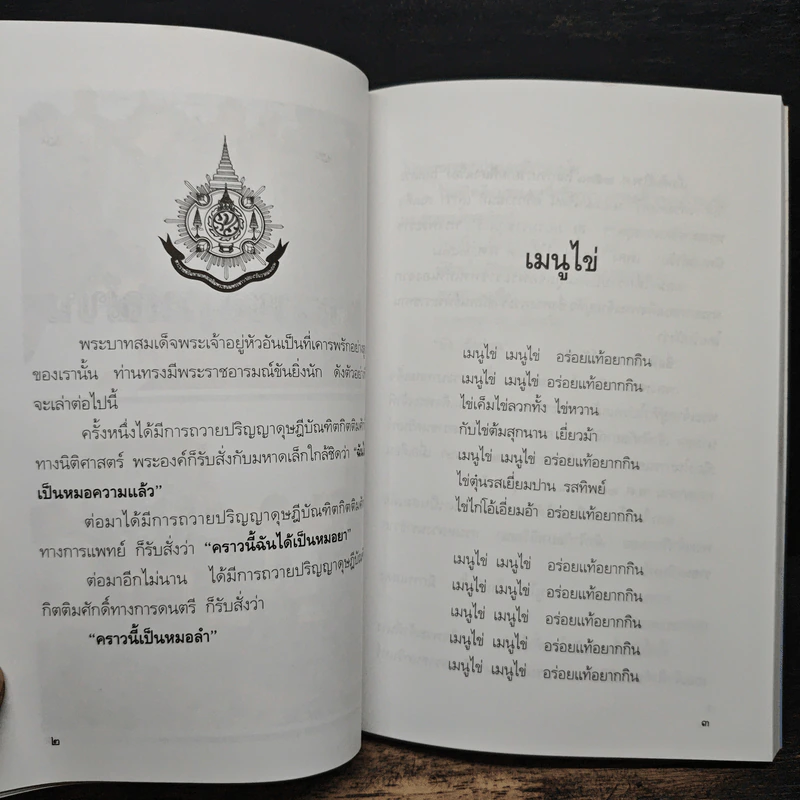 พระบาทสมเด็จพระเจ้าอยู่หัวอันเป็นที่เคารพรักอย่าง
ของเรานั้น ท่านทรงมีพระราชอารมณ์ขันยิ่งนัก ดังตัวอย่าง
จะเล่าต่อไปนี้
ครั้งหนึ่งได้มีการถวายปริญญาดุษฎีบัณฑิตกิตติมศั
ทางนิติศาสตร์ พระองค์ก็รับสั่งกับมหาดเล็กใกล้ชิดว่า
เป็นหมอความแล้ว”
ต่อมาได้มีการถวายปริญญาดุษฎีบัณฑิตกิตติมศั
ทางการแพทย์ ก็รับสั่งว่า “คราวนี้ฉันได้เป็นหมอยา”
ต่อมาอีกไม่นาน ได้มีการถวายปริญญาดุษฎีบัณ
กิตติมศักดิ์ทางการดนตรี ก็รับสั่งว่า
“คราวนี้เป็นหมอลำ”
๒
เมนูไข่
เมนูไข่ เมนูไข่ อร่อยแท้อยากกิน
เมนูไข่ เมนูไข่ อร่อยแท้อยากกิน
ไข่เค็มไข่ลวกทั้ง ไข่หวาน
กับไข่ต้มสุกนาน เยี่ยวม้า
เมนูไข่ เมนูไข่ อร่อยแท้อยากกิน
ไข่ตุ๋นรสเยี่ยมปาน รสทิพย์
ไข่ไก่โอ้เอี่ยมอ้า อร่อยแท้อยากกิน
เมนูไข่ เมนูไข่ อร่อยแท้อยากกิน
เมนูไข่ เมนูไข่ อร่อยแท้อยากกิน
เมนูไข่ เมนูไข่ อร่อยแท้อยากกิน
เมนูไข่ เมนูไข่ อร่อยแท้อยากกิน
เมนูไข่ เมนูไข่ อร่อยแท้อยากกิน
๓